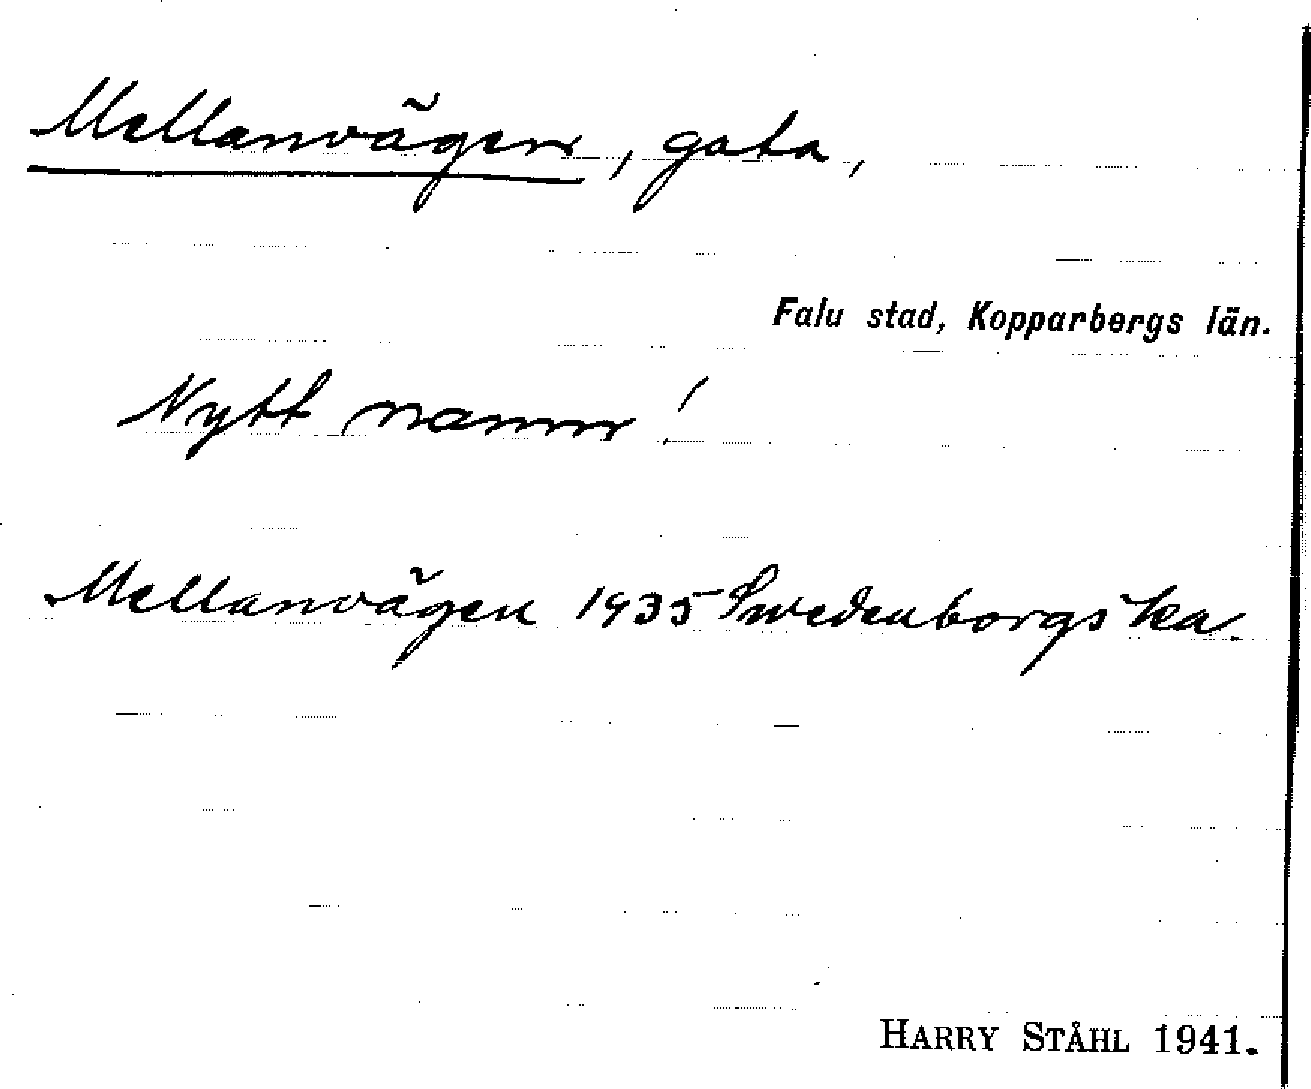 Mellanvägen, gata,
Falu stad, Kopparbergs län.
Nytt namn!
Mellanvägen 1935 Swedenborgs ka.
HARRY STÅHL 1941.